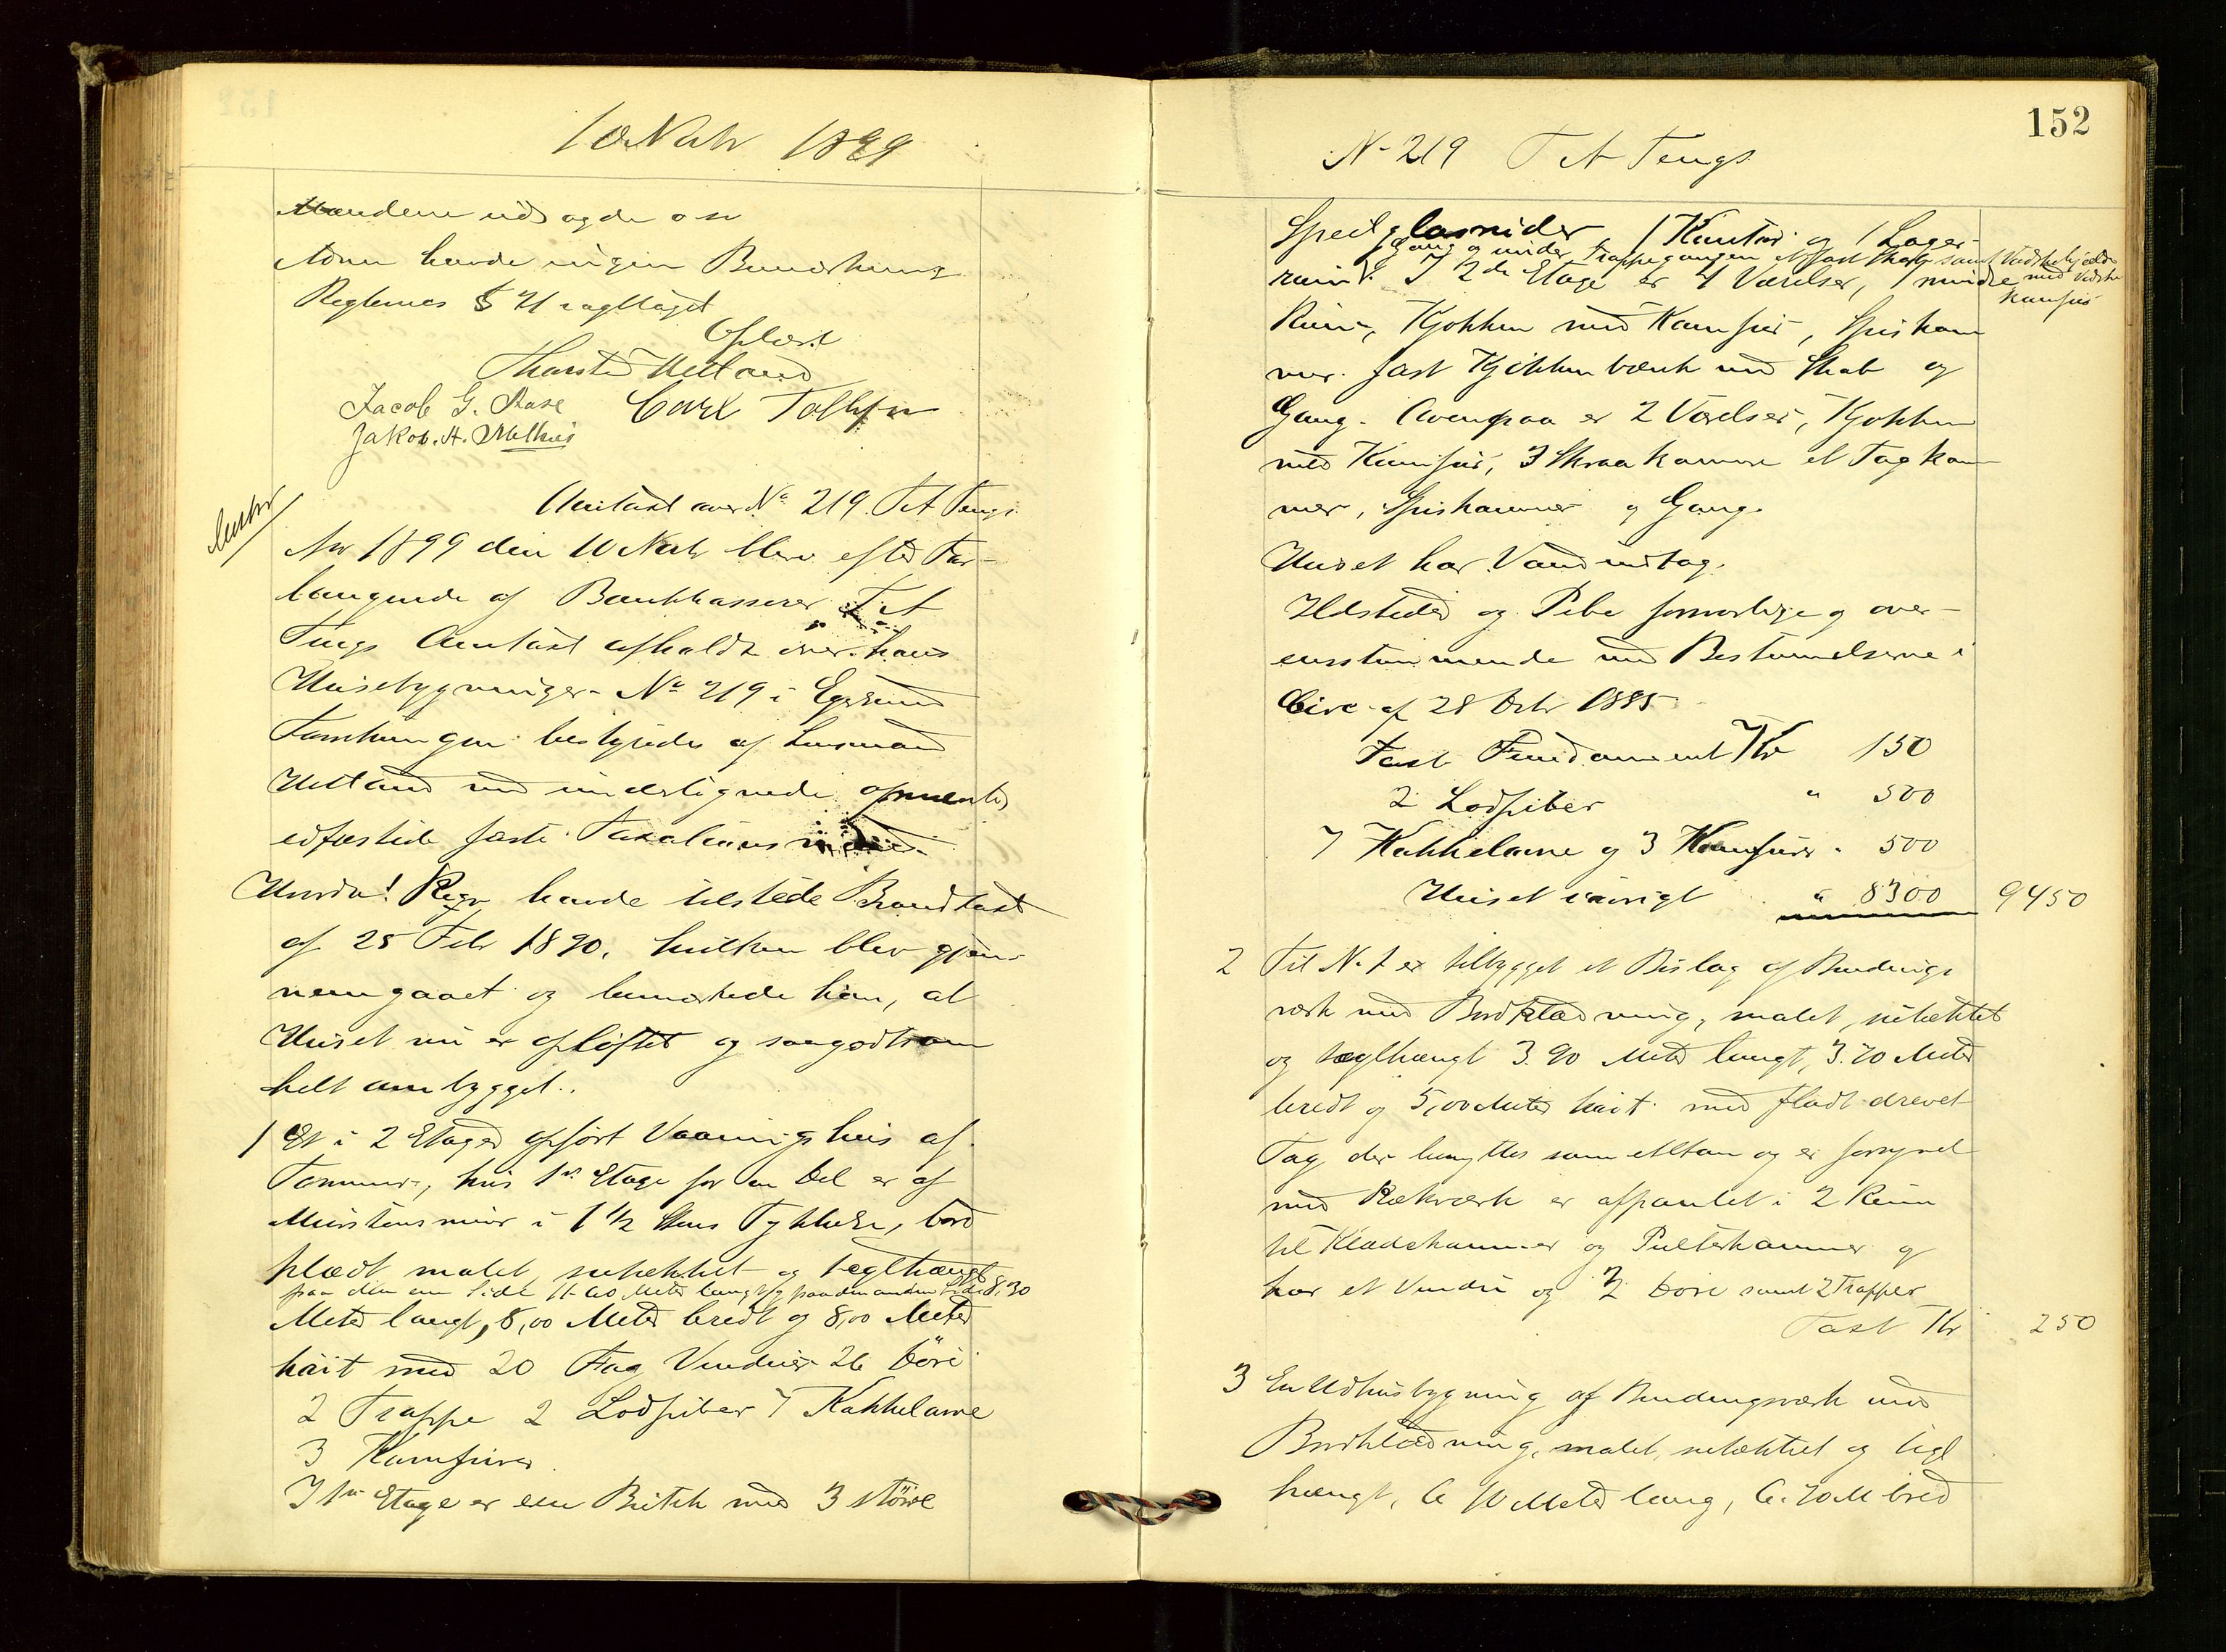 10 Novbr 1899
Mændene udsagde o s v
Adm havde ingen Bemærkning
Reglernes § 21 iagttaget
Oplæst
Thorsted Hetland
Jacob G. Aase Carl Tollefsen
Jakob. A. Melhus
Omtaxt over No 219 T A Tengs.
Aar 1899 den 10 Novbr blev efter For-
langende af Bankkasserer T A
Tengs Omtaxt afholdt over hans
Husebygninger No 219 i Egersund
Forretningen bestyredes af Lensmand
Hetland med undertegnede opnævnte
edfæstede faste Taxationsmænd.
Reqv havde tilstede Brandtaxt
af 25 Febr 1890, hvilken blev gjen-
nemgaaet og bemærkede han, at
Huset nu er opløftet og saagodtsom
helt ombygget.
1 Et i 2 Etager opført Vaaningshus af
Tømmer, hvis 1ste Etage for en Del er af
Murstensmur i 1 1/2 Stens Tykkelse, bord
klædt malet, sutækket og teglhængt
paa den ene Side 11.60 Meter langt og paa den anden Side 8,30
Meter langt, 8,00 Meter bredt og 8,00 Meter
høit med 20 Fag Vinduer 26 Döre
2 Trappe 2 Lodpiber 7 Kakkelovne
3 Komfurer
I 1ste Etage er een Butik med 3 större
152
No 219 T A Tengs
Speilglasruder 1 Kontor og 1 Lager-
Gang og under Trappegangen et fast Skab samt Vadskekjælder
rum. I 2de Etage er 4 Værelser, 1 mindre med Vadske
komfur
Rum, Kjøkken med Komfur, Spiskam
mer. fast Kjøkkenbænk med Skab og
Gang. Ovenpaa er 2 Værelser, Kjøkken
med Komfur, 3 Skraakamre et Tagkam-
mer, Spiskammer og Gang.
Huset har Vandindtag.
Ildsteder og Pibe forsvarlige og over-
ensstemmende med Bestemmelserne i
Circ af 28 Octr 1885
Taxt Fundament Kr 150
2 Lodpiber " 500
7 Kakkelovne og 3 Komfurer " 500
Huset iøvrigt " 8300 9450
2 Til No 1 er tilbygget et Bislag af Bindings
værk med Bordklædning, malet, sutækket
og teglhængt 3.90 Meter langt, 3.70 Meter
bredt og 5,00 Meter høit med fladt drevet
Tag der benyttes som Altan og er forsynet
med Rækværk er afpanelet i 2 Rum
til Klædekammer og Pulterkammer og
har et Vindu og 2 Döre samt 2 Trapper
Taxt Kr 250
3 En Udhusbygning af Bindingsværk med
Bordklædning, malet, sutækket og tegl
hængt, 6.10 Meter lang, 6.70 M bred